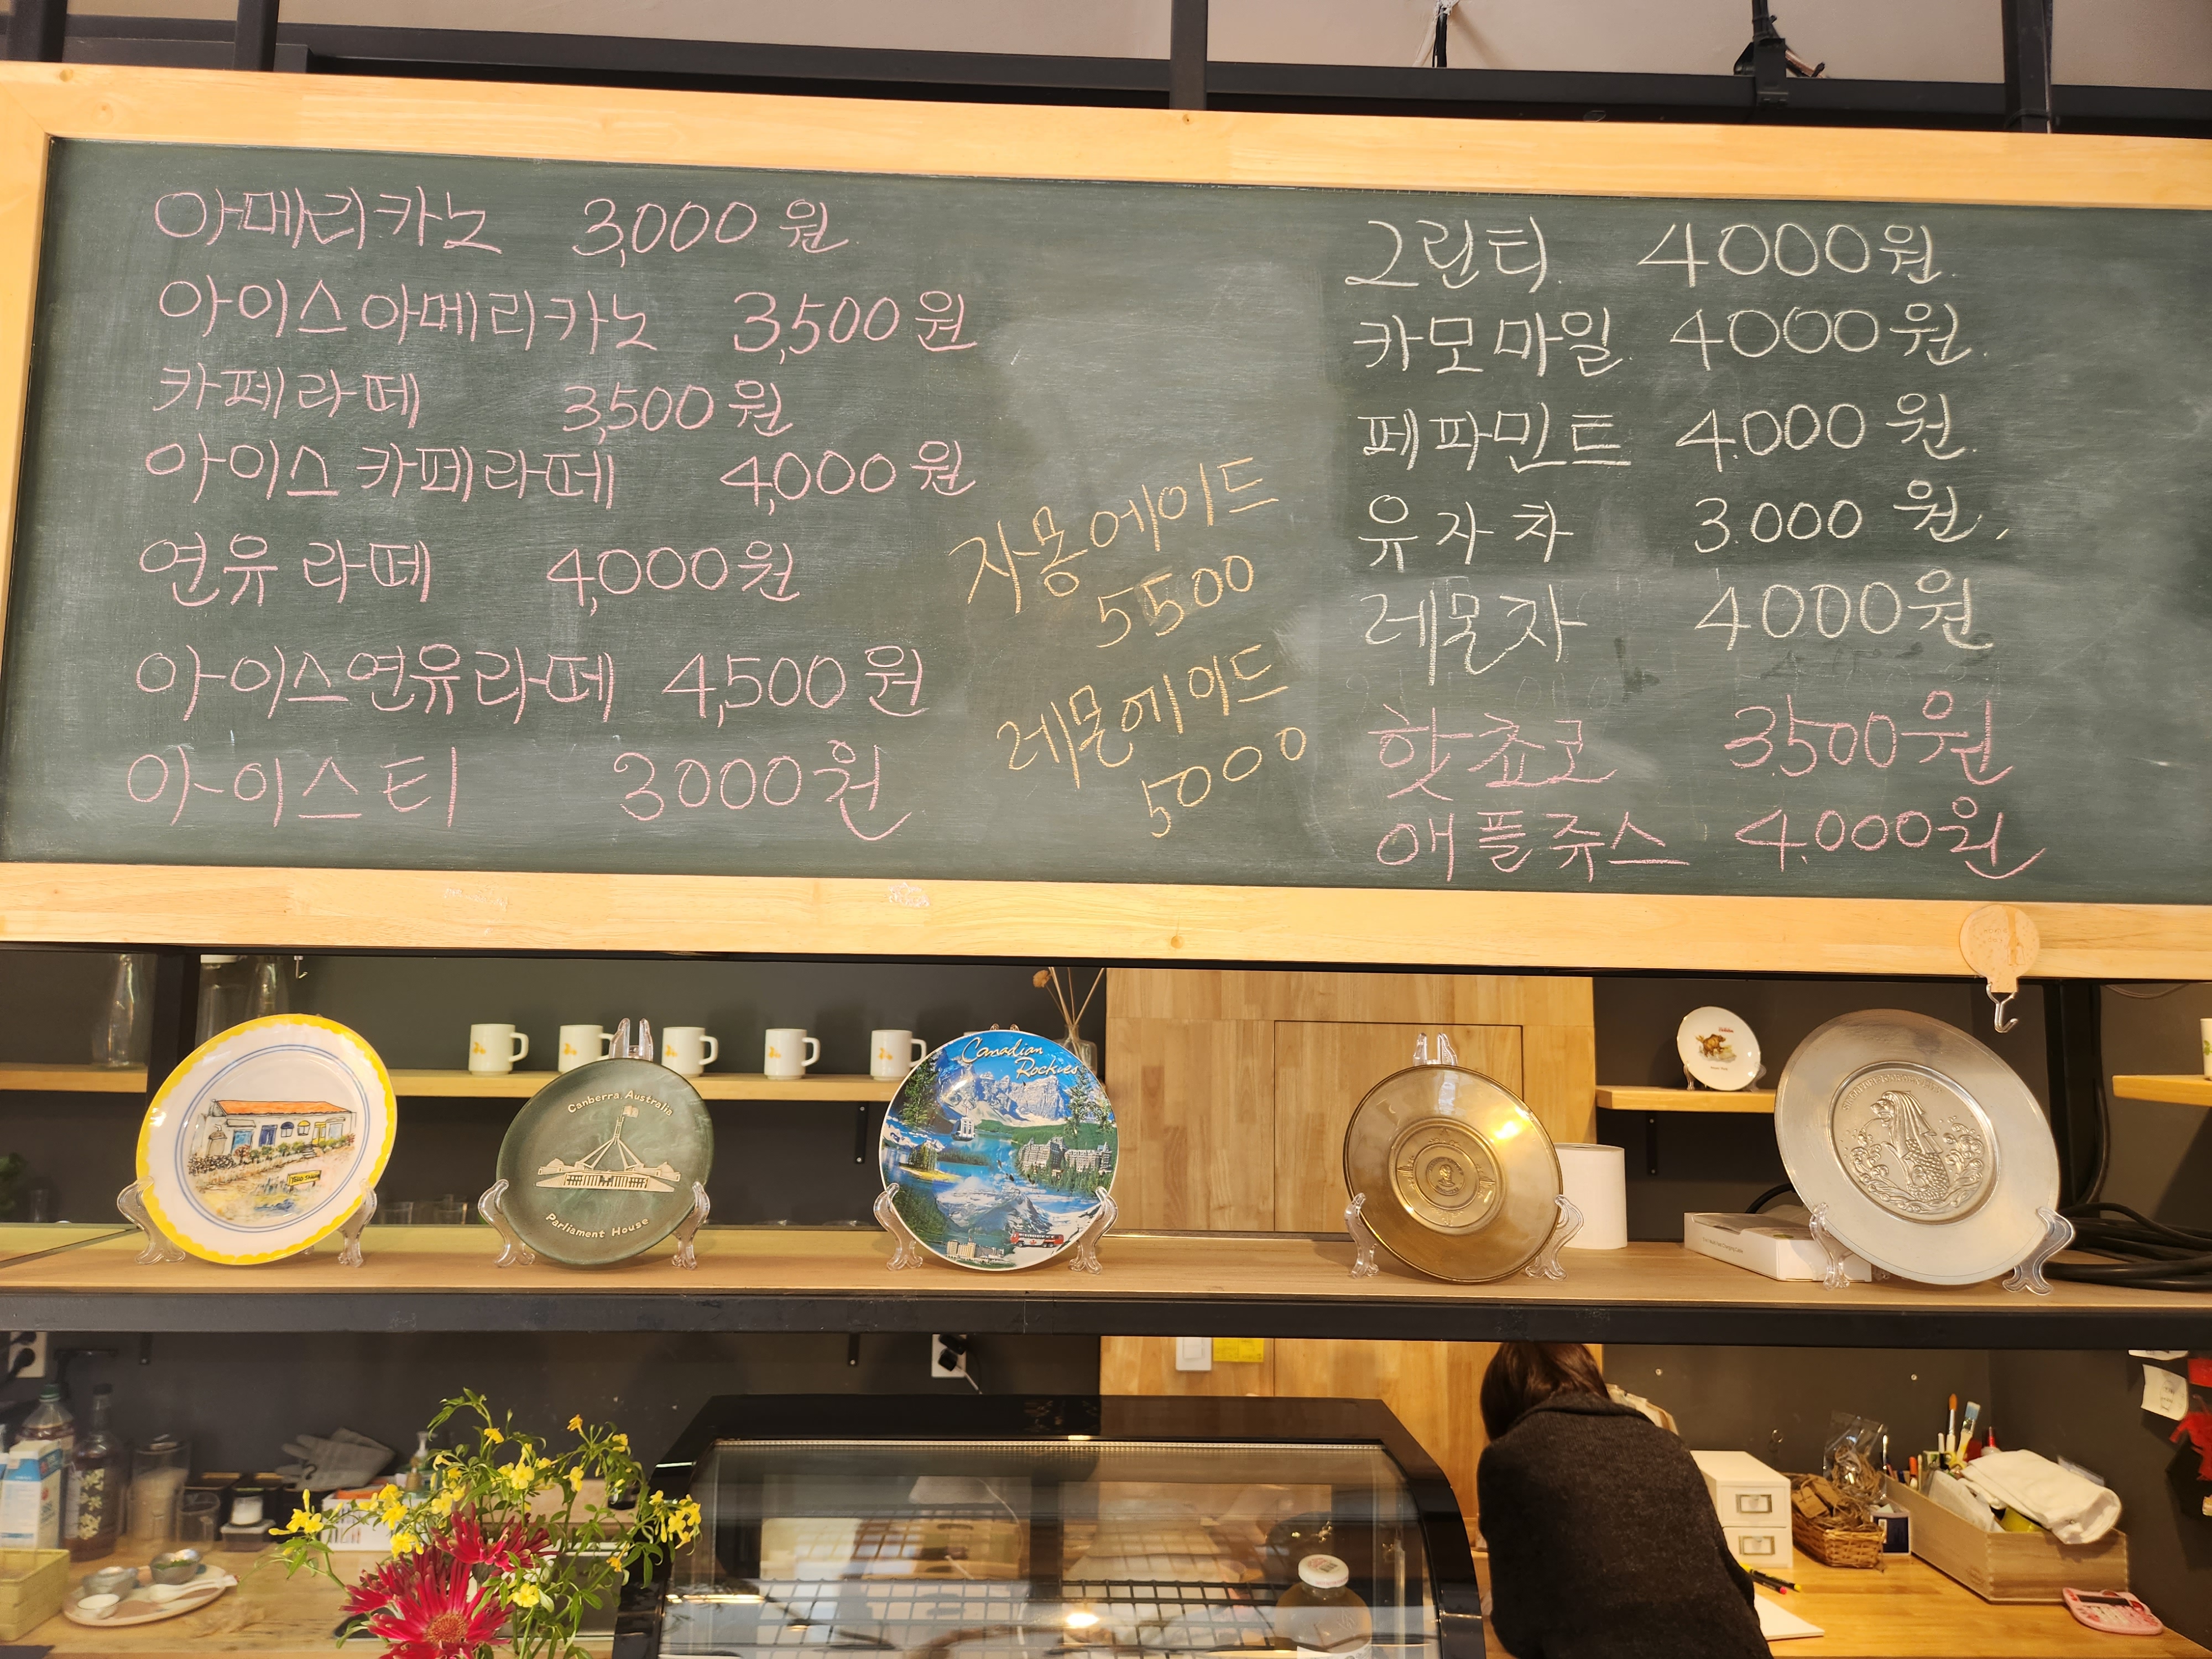 아메리카노 3,000원
아이스아메리카노 3,500원
카페라떼 3,500원
아이스 카페라떼 4,000원
연유라떼 4,000원
아이스연유라떼 4,500원
아이스티 3000원
자몽에이드
5500
레몬에이드
5000
그린티 4000원
카모마일 4000원
페파민트 4.000원
유자차 3.000원
레몬자 4000원
핫쵸코 3,500원
애플쥬스 4.000원
Canberra Australia
Parliament House
Canadian
Rockies